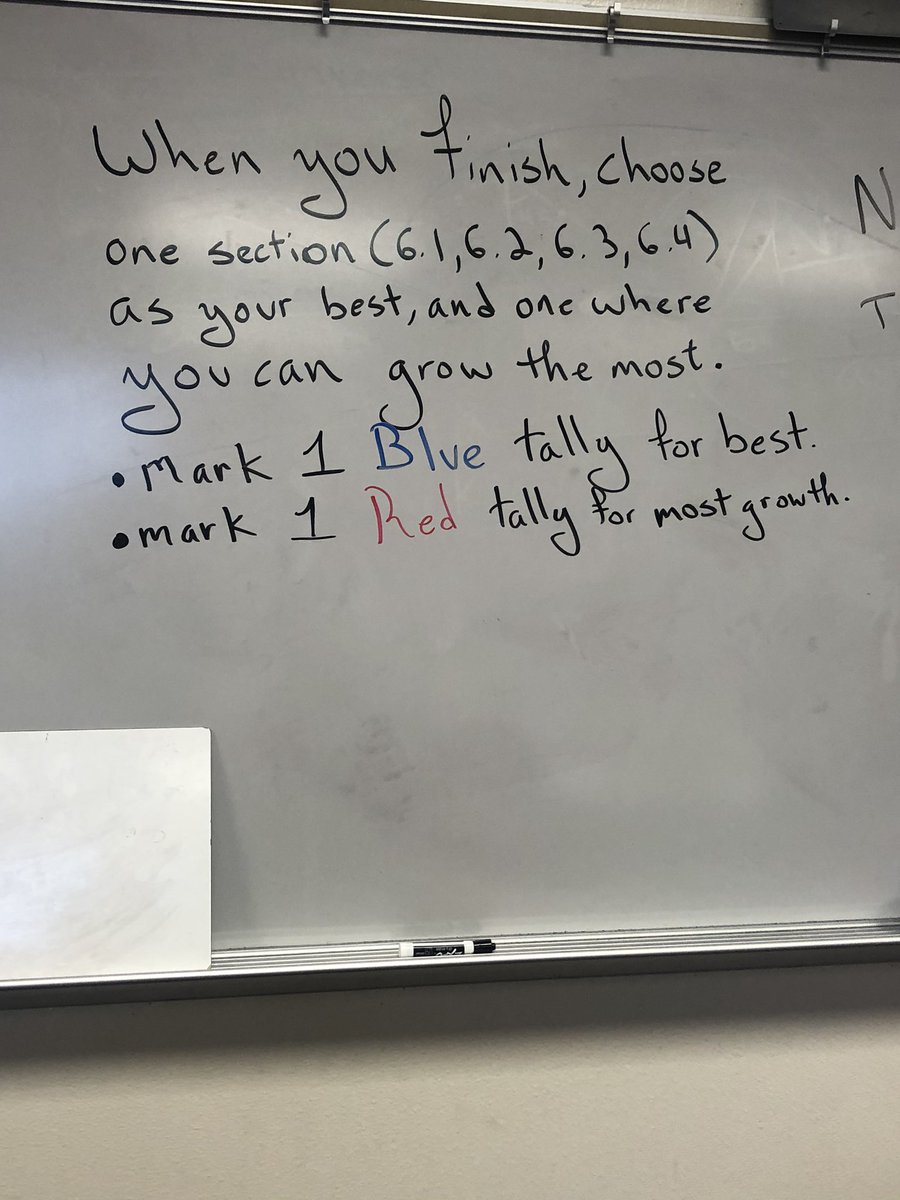 When you finish, choose
one section (6.1, 6.2, 6.3, 6.4)
as your best, and one where
you can grow the most.
• Mark 1 Blue tally for best.
• mark 1 Red tally for most growth.
N
T